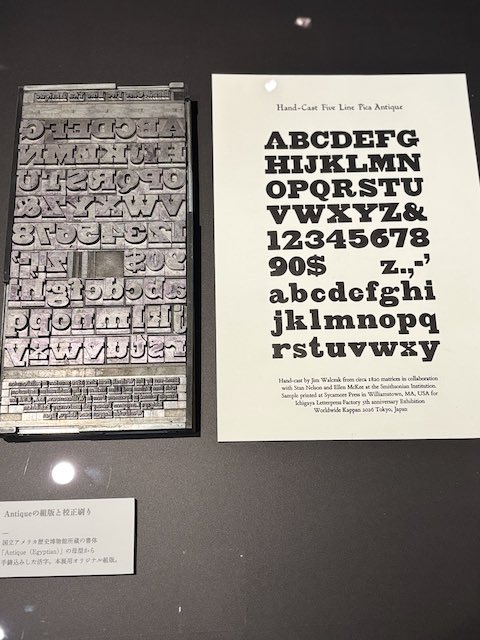 Hand-Cast Five Line Pica Antique
ABCDEFG
HIJKLMN
OPQRSTU
VWXYZ&
12345678
90$ z.,-'
abcdefghi
jklmnopq
rstuvwxy
Hand-cast by Jim Walczak from circa 1820 matrices in collaboration
with Stan Nelson and Ellen McKee at the Smithsonian Institution.
Sample printed at Sycamore Press in Williamstown, MA, USA for
Ichigaya Letterpress Factory 5th anniversary Exhibition
Worldwide Kappan 2026 Tokyo, Japan
Antiqueの組版と校正刷り
国立アメリカ歴史博物館所蔵の書体
「Antique（Egyptian）」の母型から
手鋳込みした活字。本展用オリジナル組版。